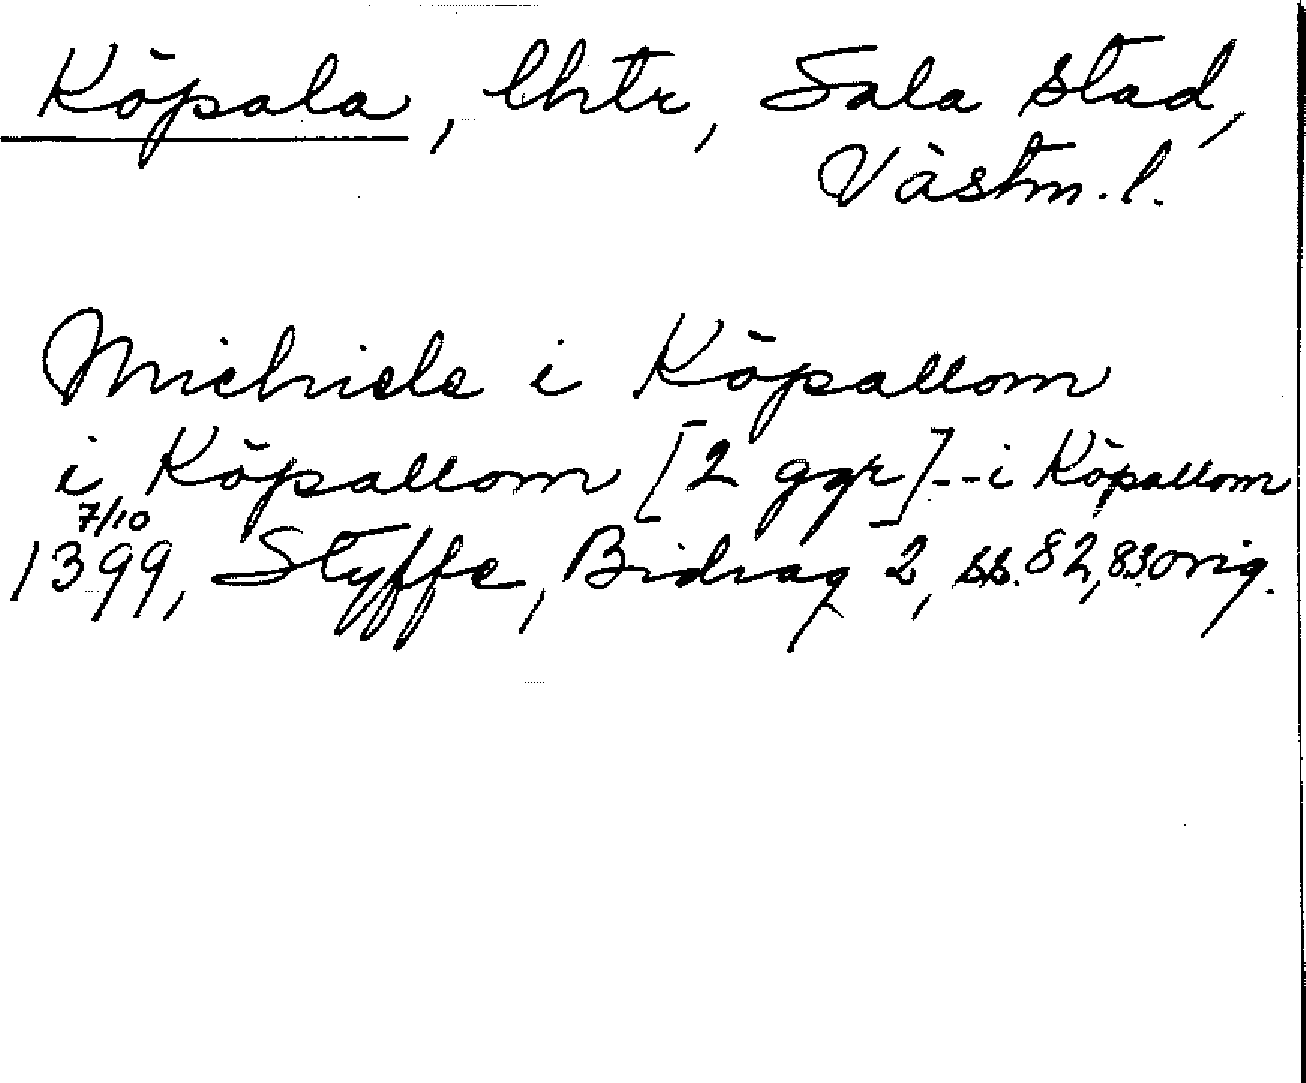 Köpala, Chtr, Sala stad,
Västm. l.
Michiels i Köpallom
i Köpallom [2 ggr]--i Köpallom
7/10
1399, Styffe, Bidrag 2, ss. 82, 83 orig.